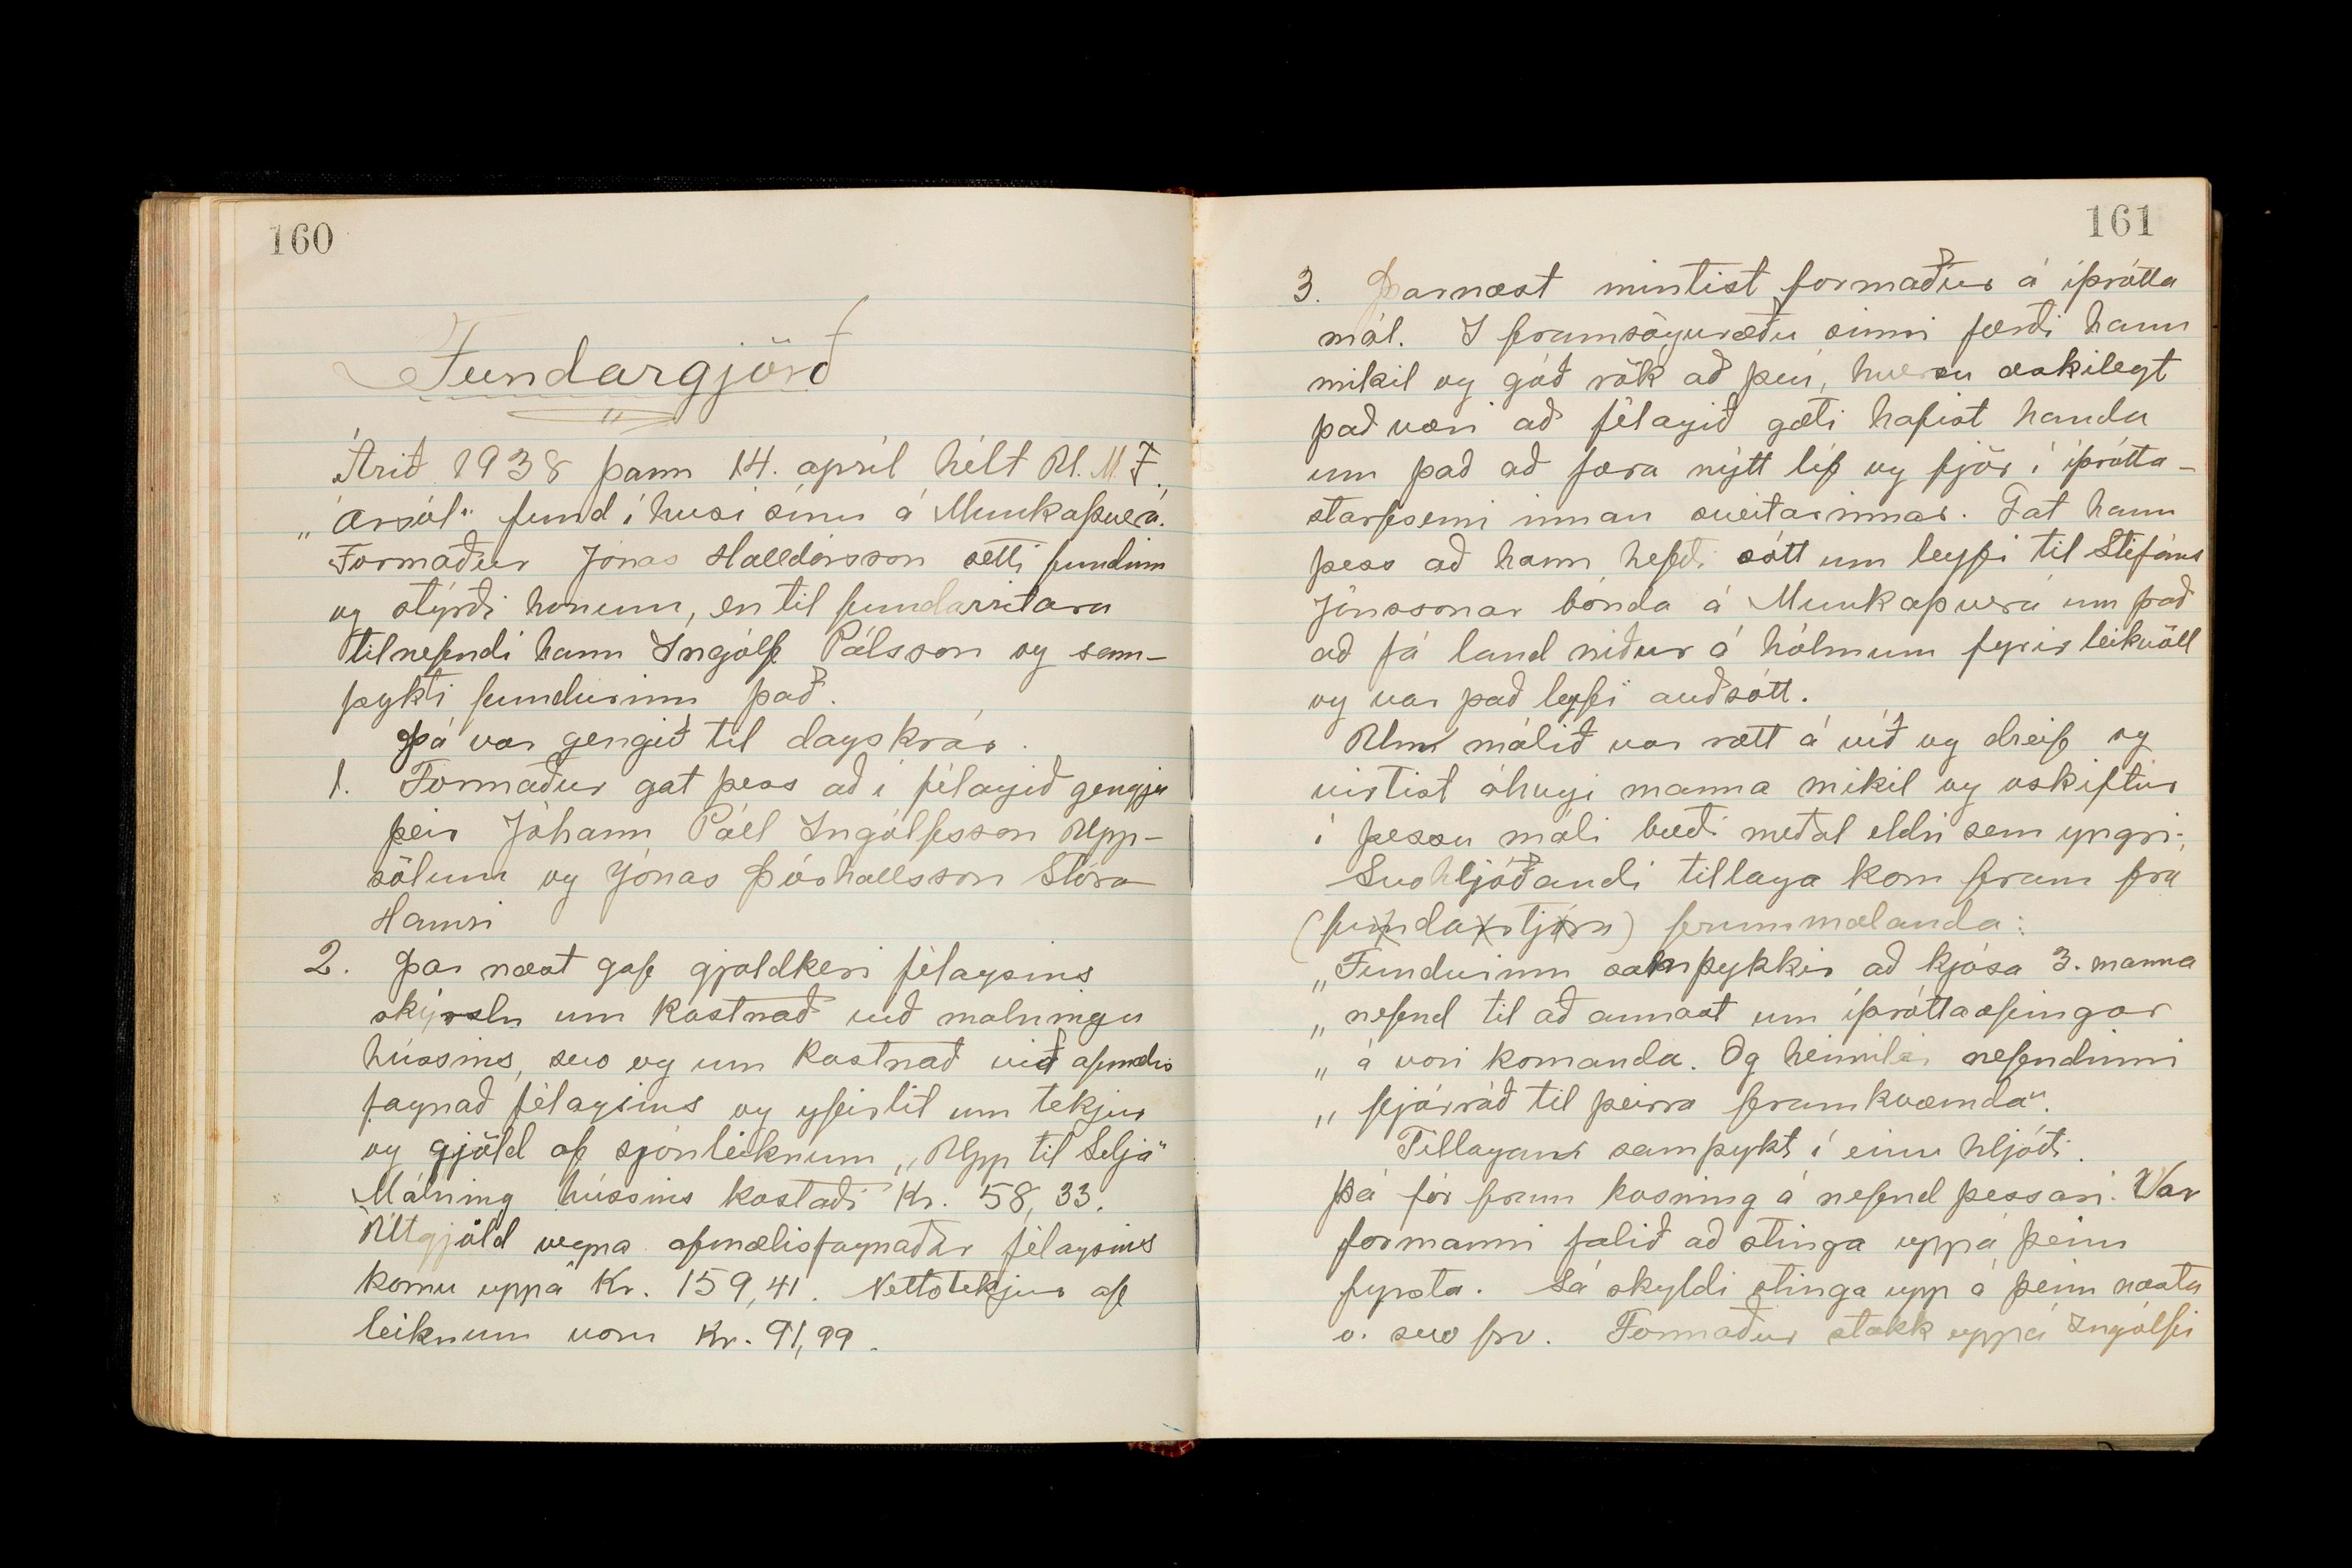 160
Fundargjörð
Árið 1938 þann 14. apríl hélt U.M.F.
„Ársól" fund í húsi sínu á Munkaþverá.
Formaður Jónas Halldórsson setti fundinn
og stýrði honum, en til fundarritara
tilnefndi hann Ingólf Pálsson og sam-
þykti fundurinn það.
Þá var gengið til dagskrár.
1. Formaður gat þess að í félagið gengju
þeir Jóhann Páll Ingólfsson Upp-
sölum og Jónas Þórhallsson Stóra
Hamri
2. Þar næst gaf gjaldkeri félagsins
skýrslu um kostnað við malningu
hússins, svo og um kostnað við afmælis
fagnað félagsins og yfirlit um tekjur
og gjöld af sjónleiknum „Upp til Selja"
Málning hússins kostaði Kr. 58,33.
Útgjöld vegna afmælisfagnaðar félagsins
komu uppá Kr. 159,41. Nettótekjur af
leiknum voru Kr. 91,99.
161
3. Þarnæst mintist formaður á íþrótta
mál. I framsöguræðu sinni færði hann
mikil og góð rök að því, hversu æskilegt
það væri að félagið gæti hafist handa
um það að færa nýtt líf og fjör í íþrótta-
starfsemi innan sveitarinnar. Gat hann
þess að hann hefði sótt um leyfi til Stefáns
Jónssonar bónda á Munkaþverá um það
að fá land niður á hólmum fyrir leikvöll
og var það leyfi auðsótt.
Um málið var rætt á víð og dreif og
virtist áhugi manna mikil og oskiftur
í þessu máli bæði meðal eldri sem yngri.
Svohljóðandi tillaga kom fram frá
(fundarstjóra) frummælanda:
„Fundurinn samþykkir að kjósa 3. manna
„nefnd til að annast um íþróttaæfingar
„á vori komanda. Og heimilar nefndinni
„fjárráð til þeirra framkvæmda".
Tillagan samþykt í einu hljóði.
Þá fór fram kosning á nefnd þessari. Var
formanni falið að stinga uppá þeim
fyrsta. Sá skyldi stinga upp á þeim næsta
o. svo frv. Formaður stakk uppá Ingólfi